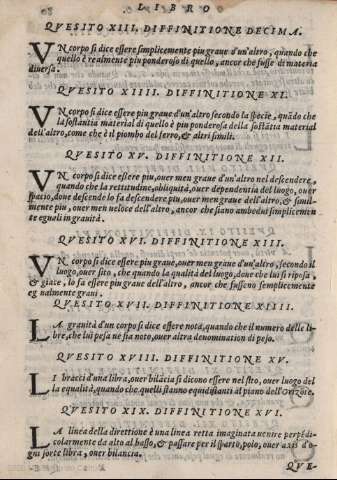 LIBRO
QVESITO XIII. DIFFINITIONE DECIMA.
VN corpo si dice essere simplicemente piu graue d'un'altro, quãdo che
quello è realmente piu ponderoso di quello, ancor che fusse di materia
diuersa.
QVESITO XIIII. DIFFINITIONE XI.
VN corpo si dice essere piu graue d'un'altro secondo la specie, quãdo che
la sostãtia material di quello è piu ponderosa della sostãtia material
dell'altro, come che è il piombo del ferro, & altri simili.
QVESITO XV. DIFFINITIONE XII.
VN corpo si dice essere piu, ouer men graue d'un'altro nel descendere,
quando che la rettitudine, obliquità, ouer dependentia del luogo, ouer
spacio, doue descende lo fa descendere piu, ouer men graue dell'altro, & simil-
mente piu, ouer men ueloce dell'altro, ancor che siano ambidui simplicemen
te eguali in grauità.
QVESITO XVI. DIFFINITIONE XIII.
VN corpo si dice essere piu graue, ouer men graue d'un'altro, secondo il
luogo, ouer sito, che quando la qualità del luogo, doue che lui si riposa,
& giace, lo fa essere piu graue dell'altro, ancor che fusseno semplicemente
egualmente graui.
QVESITO XVII. DIFFINITIONE XIIII.
LA grauità d'un corpo si dice essere nota, quando che il numero delle li-
bre, che lui pesa ne sia noto, ouer altra denomination di peso.
QVESITO XVIII. DIFFINITIONE XV.
LI bracci d'una libra, ouer bilãcia si dicono essere nel sito, ouer luogo del
la equalità, quando che quelli stanno equidistanti al piano dell'Orizõte.
QVESITO XIX. DIFFINITIONE XVI.
LA linea della direttione è una linea retta imaginata uenire perpẽdi-
colarmente da alto al basso, & passare per il sparto, polo, ouer assis d'o
gni sorte libra, ouer bilancia.
QVE-